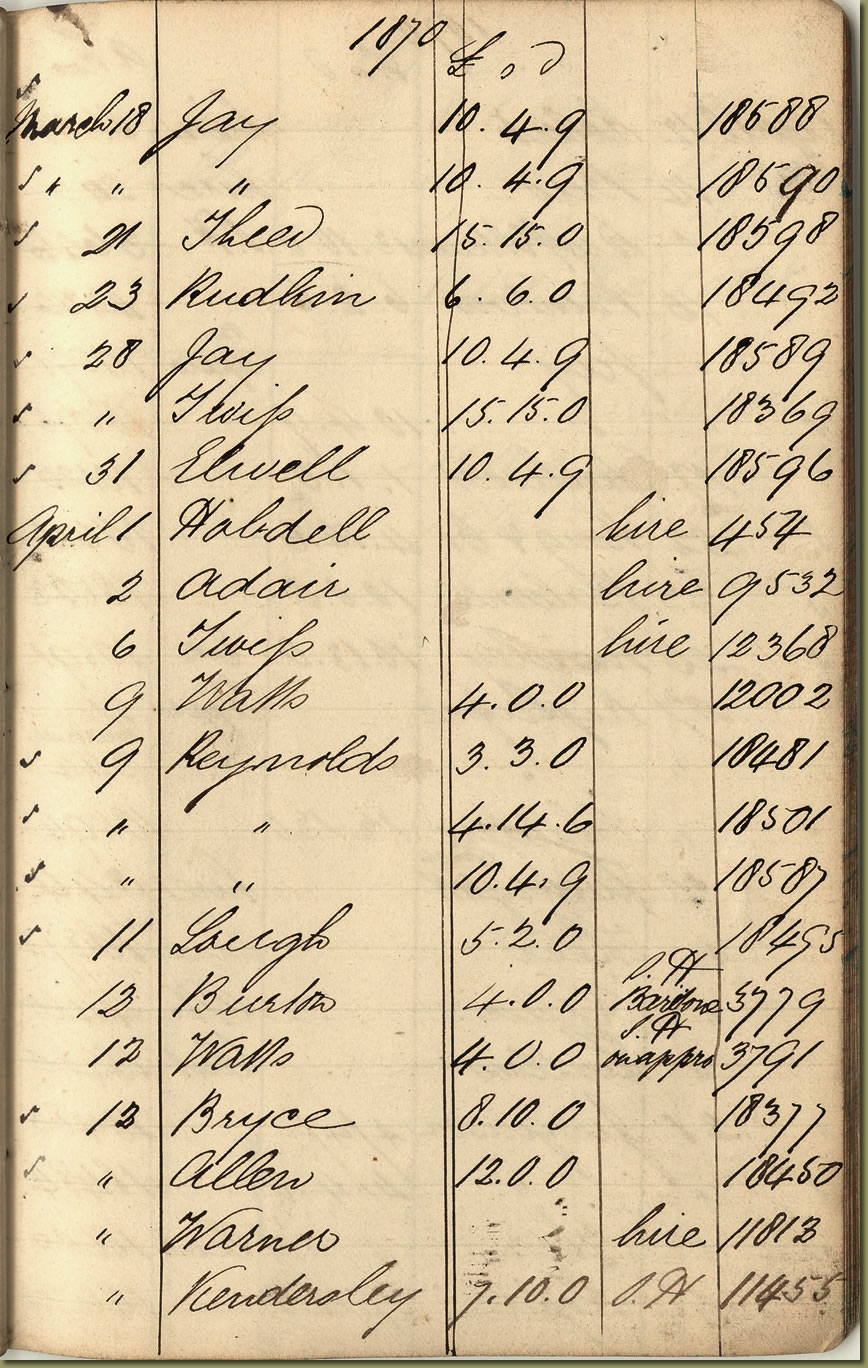 1870
£ s d
March 18 Jay 10. 4. 9 18588
" " " 10. 4. 9 18590
" 21 Theed 15. 15. 0 18598
23 Rudkin 6. 6. 0 18492
28 Jay 10. 4. 9 18589
" Twiss 15. 15. 0 18369
31 Elwell 10. 4. 9 18596
April 1 Hobdell hire 454
2 Adair hire 9532
6 Twiss hire 12368
9 Watts 4. 0. 0 12002
9 Reynolds 3. 3. 0 18481
" " 4. 14. 6 18501
" " 10. 4. 9 18587
11 Lough 5. 2. 0 18495
S. H
12 Burton 4. 0. 0 Baritone 3779
S. H
12 Watts 4. 0. 0 on appro 3791
12 Bryce 8. 10. 0 18377
" Allen 12. 0. 0 18450
" Warner hire 11813
" Kendersley 7. 10. 0 S. H 11455